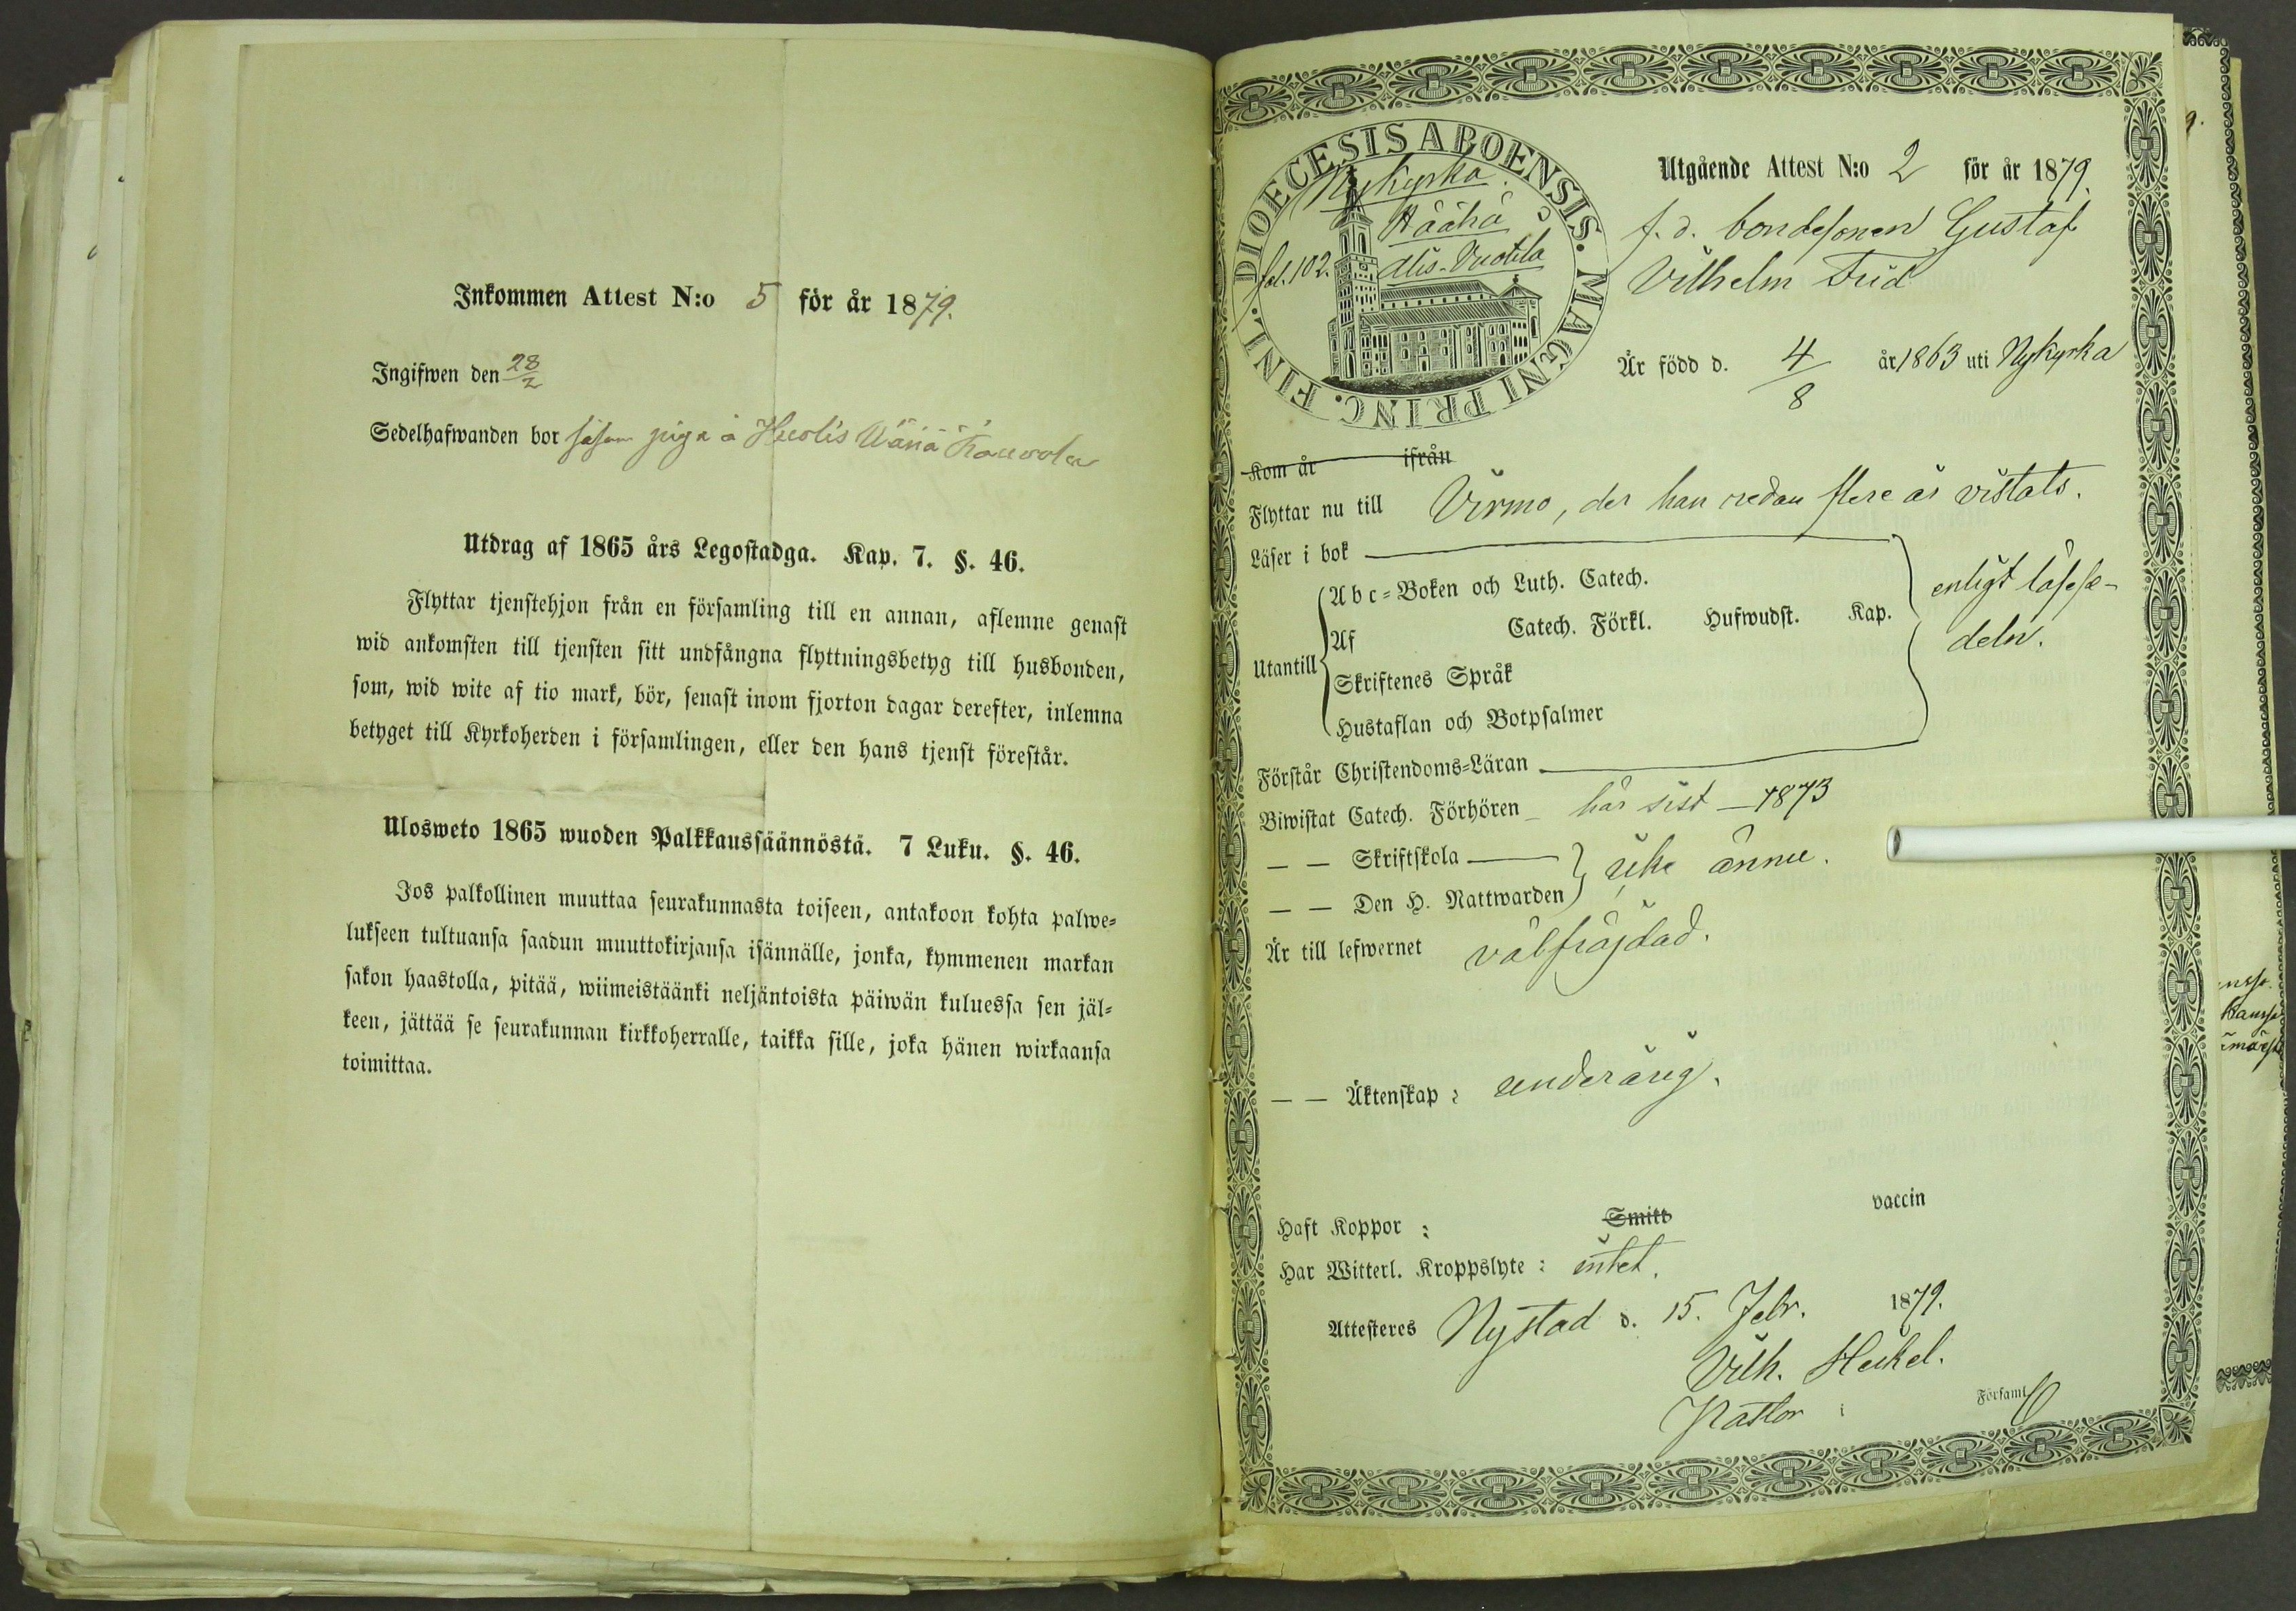 Inkommen Attest N:o 5 för år 1879.
Ingifwen den 28/2
Sedelhafwanden bor såsom piga å Huolis Wänä
Utdrag af 1865 års Legostadga. Kap. 7. §. 46.
Flyttar tjenstehjon från en församling till en annan, aflemne genast
wid ankomsten till tjensten sitt undfångna flyttningsbetyg till husbonden,
som, wid wite af tio mark, bör, senast inom fjorton dagar derefter, inlemna
betyget till Kyrkoherden i församlingen, eller den hans tjenst förestår.
Ulosweto 1865 wuoden Palkkaussäännöstä. 7 Luku. §. 46.
Jos palkollinen muuttaa seurakunnasta toiseen, antakoon kohta palwe=
lukseen tultuansa saadun muuttokirjansa isännälle, jonka, kymmenen markan
sakon haastolla, pitää, wiimeistäänki neljäntoista päiwän kuluessa sen jäl=
keen, jättää se seurakunnan kirkkoherralle, taikka sille, joka hänen wirkaansa
toimittaa.
DIOECESIS ABOENSIS. MAGNI PRINC. FINL.
Nykyrka.
Häähä
fol. 102. Alis-Vuotila
Utgående Attest N:o 2 för år 1879.
f. d. bondesonen Gustaf
Vilhelm
Är född d. 4/8 år 1863 uti Nykyrka
Kom år ifrån
Flyttar nu till Virmo, der han redan flere år vistats.
Läser i bok
Utantill
Abc=Boken och Luth. Catech.
Af Catech. Förkl. Hufwudst. Kap.
Skriftenes Språk
Hustaflan och Botpsalmer
enligt läsese-
deln.
Förstår Christendoms=Läran
Biwistat Catech. Förhören här sist – 1873
— — Skriftskola
— — Den H. Nattwarden
icke ännu.
Är till lefwernet välfräjdad.
— — Äktenskap: underårig.
Haft Koppor: Smitt vaccin
Har Witterl. Kroppslyte: intet.
Attesteres Nystad d. 15. Febr. 1879.
Vilh. Heikel.
Pastor i Församl